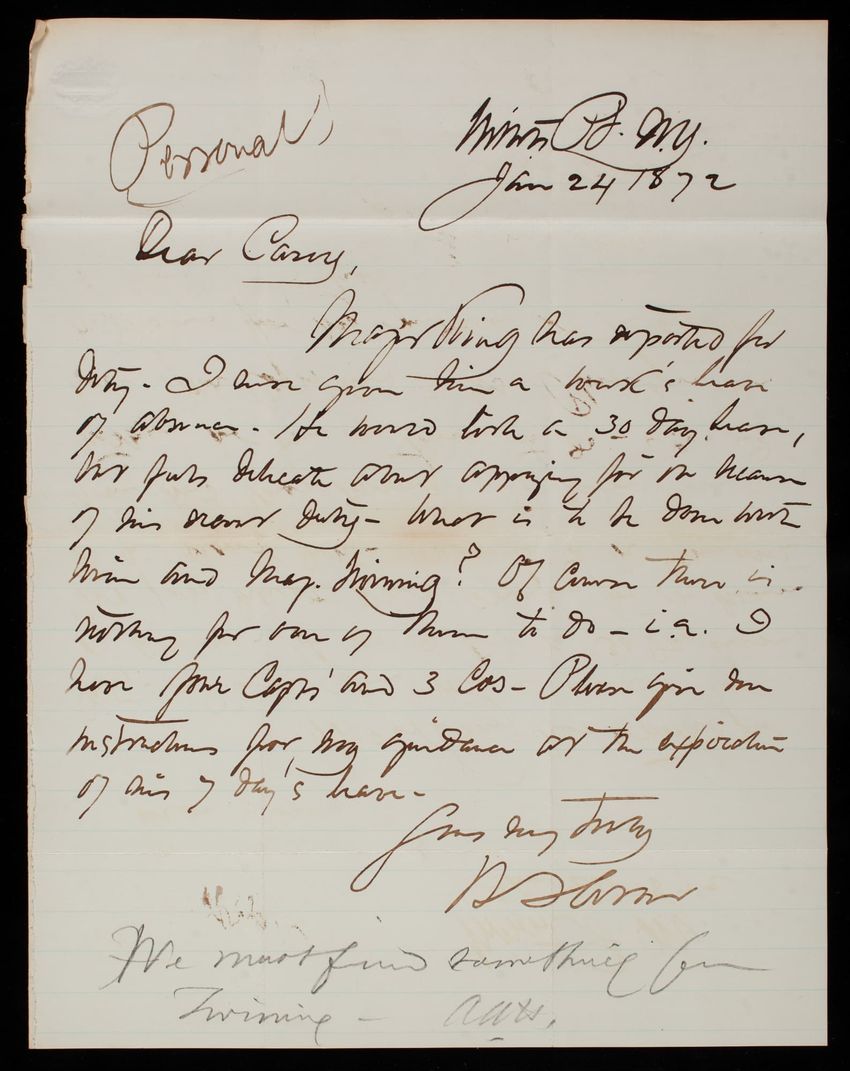 Personal)
Willets Pt. N.Y.
Jan 24 1872
Dear Casey,
Major King has reported for
duty - I have given him a week's leave
of absence - He would like a 30 day leave,
but feels delicate about applying for it because
of his recent duty - What is to be done with
him and Maj. Twining? Of course there is
nothing for one of them to do - i.e. I
have four Capts and 3 Cos - Please give me
instructions for my guidance at the expiration
of his 7 day's leave -
Yours very truly
We must find something for
Twining - AAH.